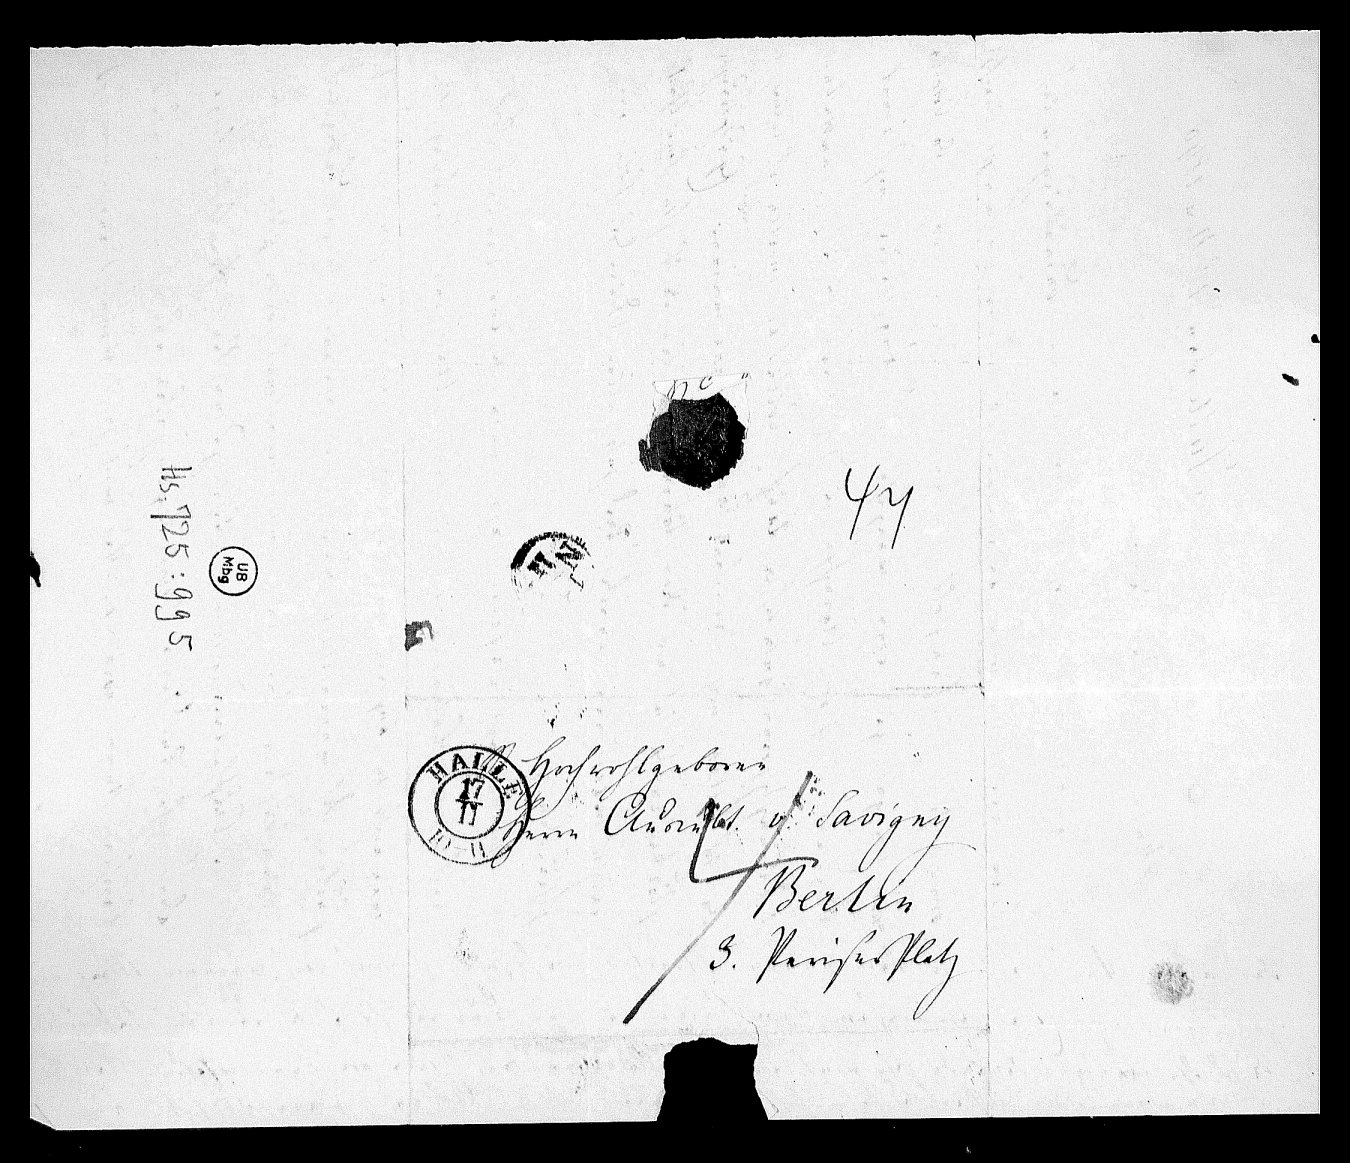 Hs. 725:995
UB
Mbg
HALLE
17
11
Hochwohlgeboren
Herrn v. Savigny
Berlin
3. Pariser Platz